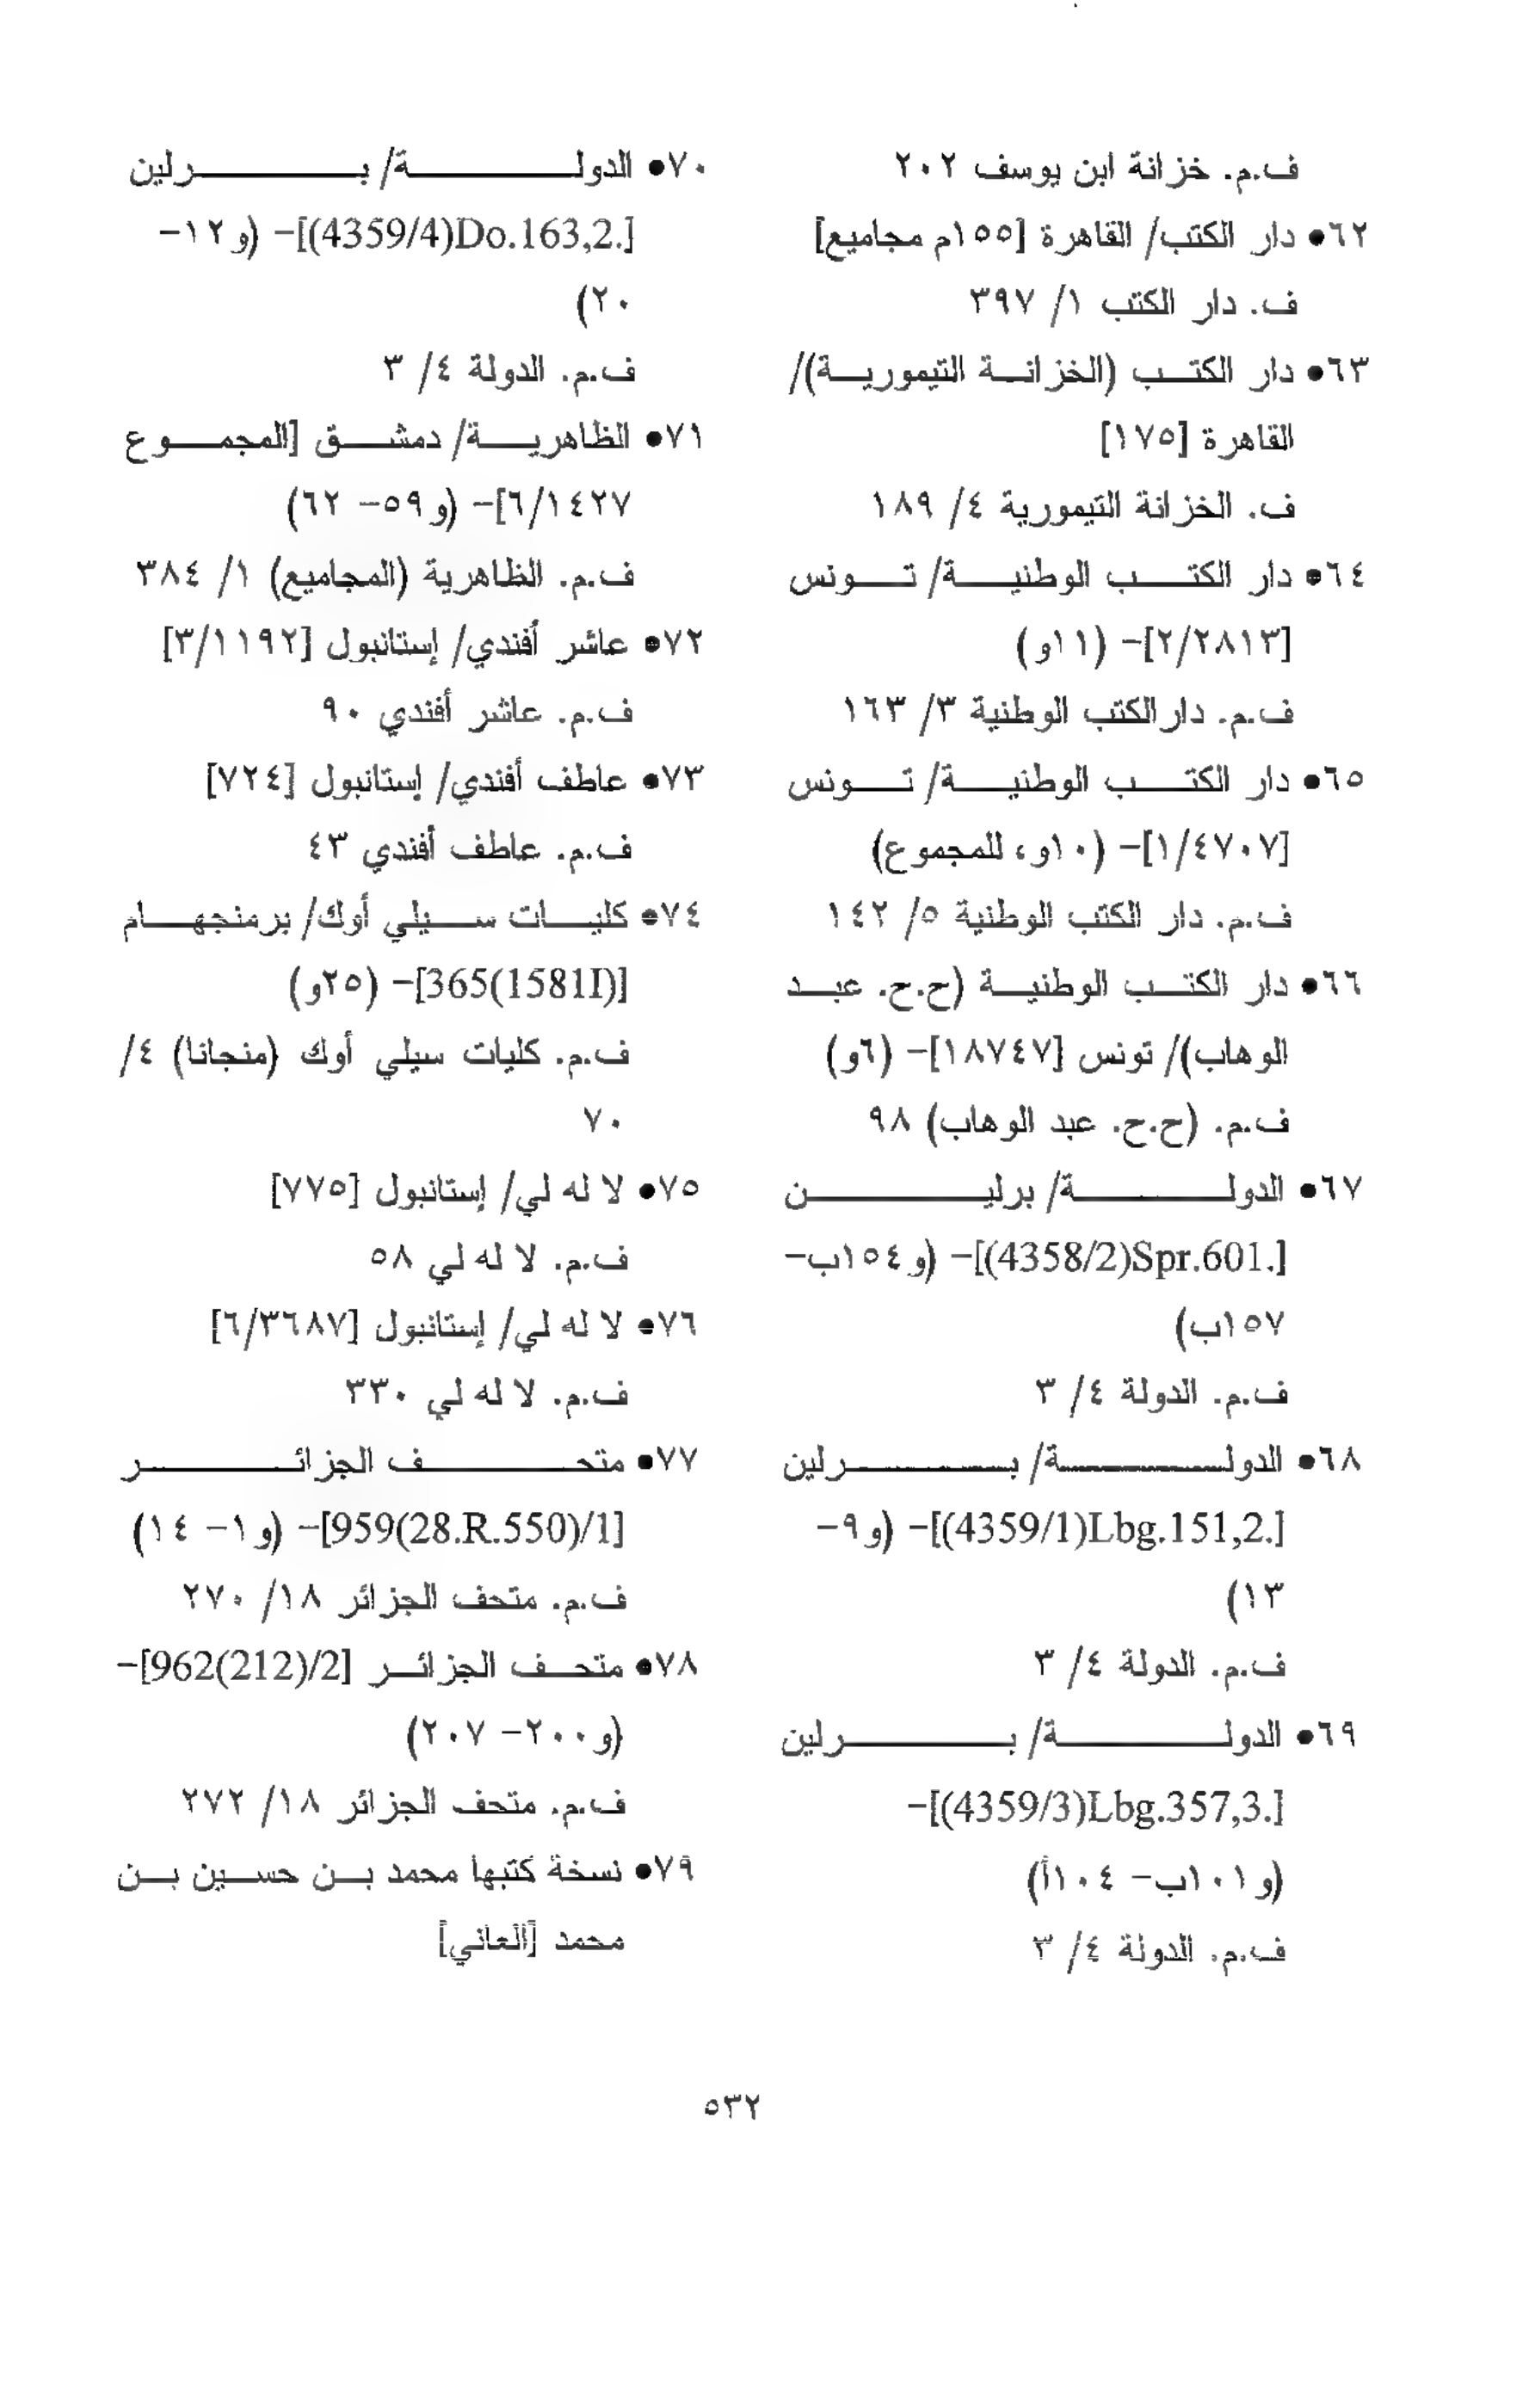 ف.م. خزانة ابن يوسف ٢٠٢
٦٢● دار الكتب/ القاهرة [١٥٥م مجاميع]
ف. دار الكتب ١/ ٣٩٧
٦٣● دار الكتب (الخزانة التيمورية)/
القاهرة [١٧٥]
ف. الخزانة التيمورية ٤/ ١٨٩
٦٤● دار الكتب الوطنية/ تونس
[٢/٢٨١٣]- (١١و)
ف.م. دارالكتب الوطنية ٣/ ١٦٣
٦٥● دار الكتب الوطنية/ تونس
[١/٤٧٠٧]- (١٠و، للمجموع)
ف.م. دار الكتب الوطنية ٥/ ١٤٢
٦٦● دار الكتب الوطنية (ح.ح. عبد
الوهاب)/ تونس [١٨٧٤٧]- (٦و)
ف.م. (ح.ح. عبد الوهاب) ٩٨
٦٧● الدولة/ برلين
[.4358/2)Spr.601)]- (و١٥٤ب-
١٥٧ب)
ف.م. الدولة ٤/ ٣
٦٨● الدولة/ برلين
[.4359/1)Lbg.151,2)]- (و٩-
١٣)
ف.م. الدولة ٤/ ٣
٦٩● الدولة/ برلين
[.4359/3)Lbg.357,3)]-
(و١٠١ب- ١٠٤أ)
ف.م. الدولة ٤/ ٣
٧٠● الدولة/ برلين
[.4359/4)Do.163,2)]- (و١٢-
٢٠)
ف.م. الدولة ٤/ ٣
٧١● الظاهرية/ دمشق [المجموع
٦/١٤٢٧]- (و٥٩- ٦٢)
ف.م. الظاهرية (المجاميع) ١/ ٣٨٤
٧٢● عاشر أفندي/ إستانبول [٣/١١٩٢]
ف.م. عاشر أفندي ٩٠
٧٣● عاطف أفندي/ إستانبول [٧٢٤]
ف.م. عاطف أفندي ٤٣
٧٤● كليات سيلي أوك/ برمنجهام
[365(1581I)]- (٢٥و)
ف.م. كليات سيلي أوك (منجانا) ٤/
٧٠
٧٥● لا له لي/ إستانبول [٧٧٥]
ف.م. لا له لي ٥٨
٧٦● لا له لي/ إستانبول [٦/٣٦٨٧]
ف.م. لا له لي ٣٣٠
٧٧● متحف الجزائر
[959(28.R.550)/1]- (و١- ١٤)
ف.م. متحف الجزائر ١٨/ ٢٧٠
٧٨● متحف الجزائر [962(212)/2]-
(و٢٠٠- ٢٠٧)
ف.م. متحف الجزائر ١٨/ ٢٧٢
٧٩● نسخة كتبها محمد بن حسين بن
محمد [العاني]
٥٣٢